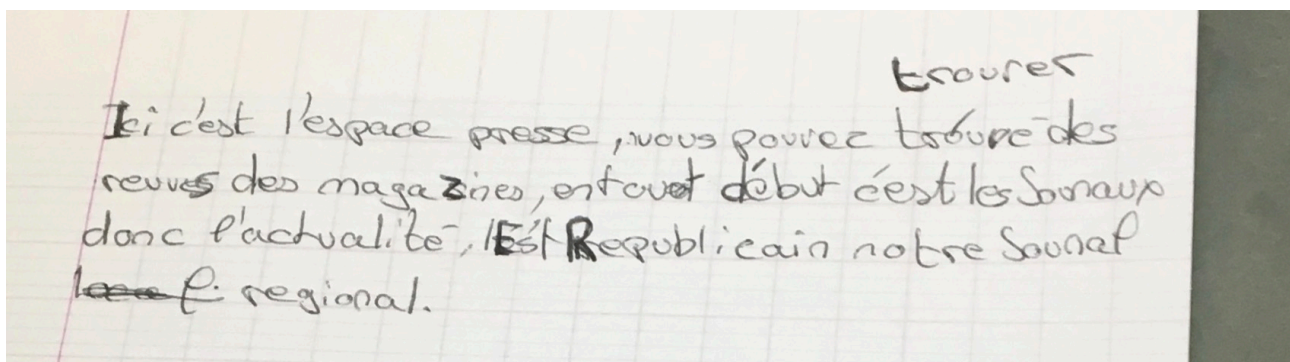 trouver
Ici c'est l'espace presse, vous pouvez trouvé des
revues des magazines, en tout début c'est les Jounaux
donc l'actualité, l'Est Republicain notre Jounal
regional.